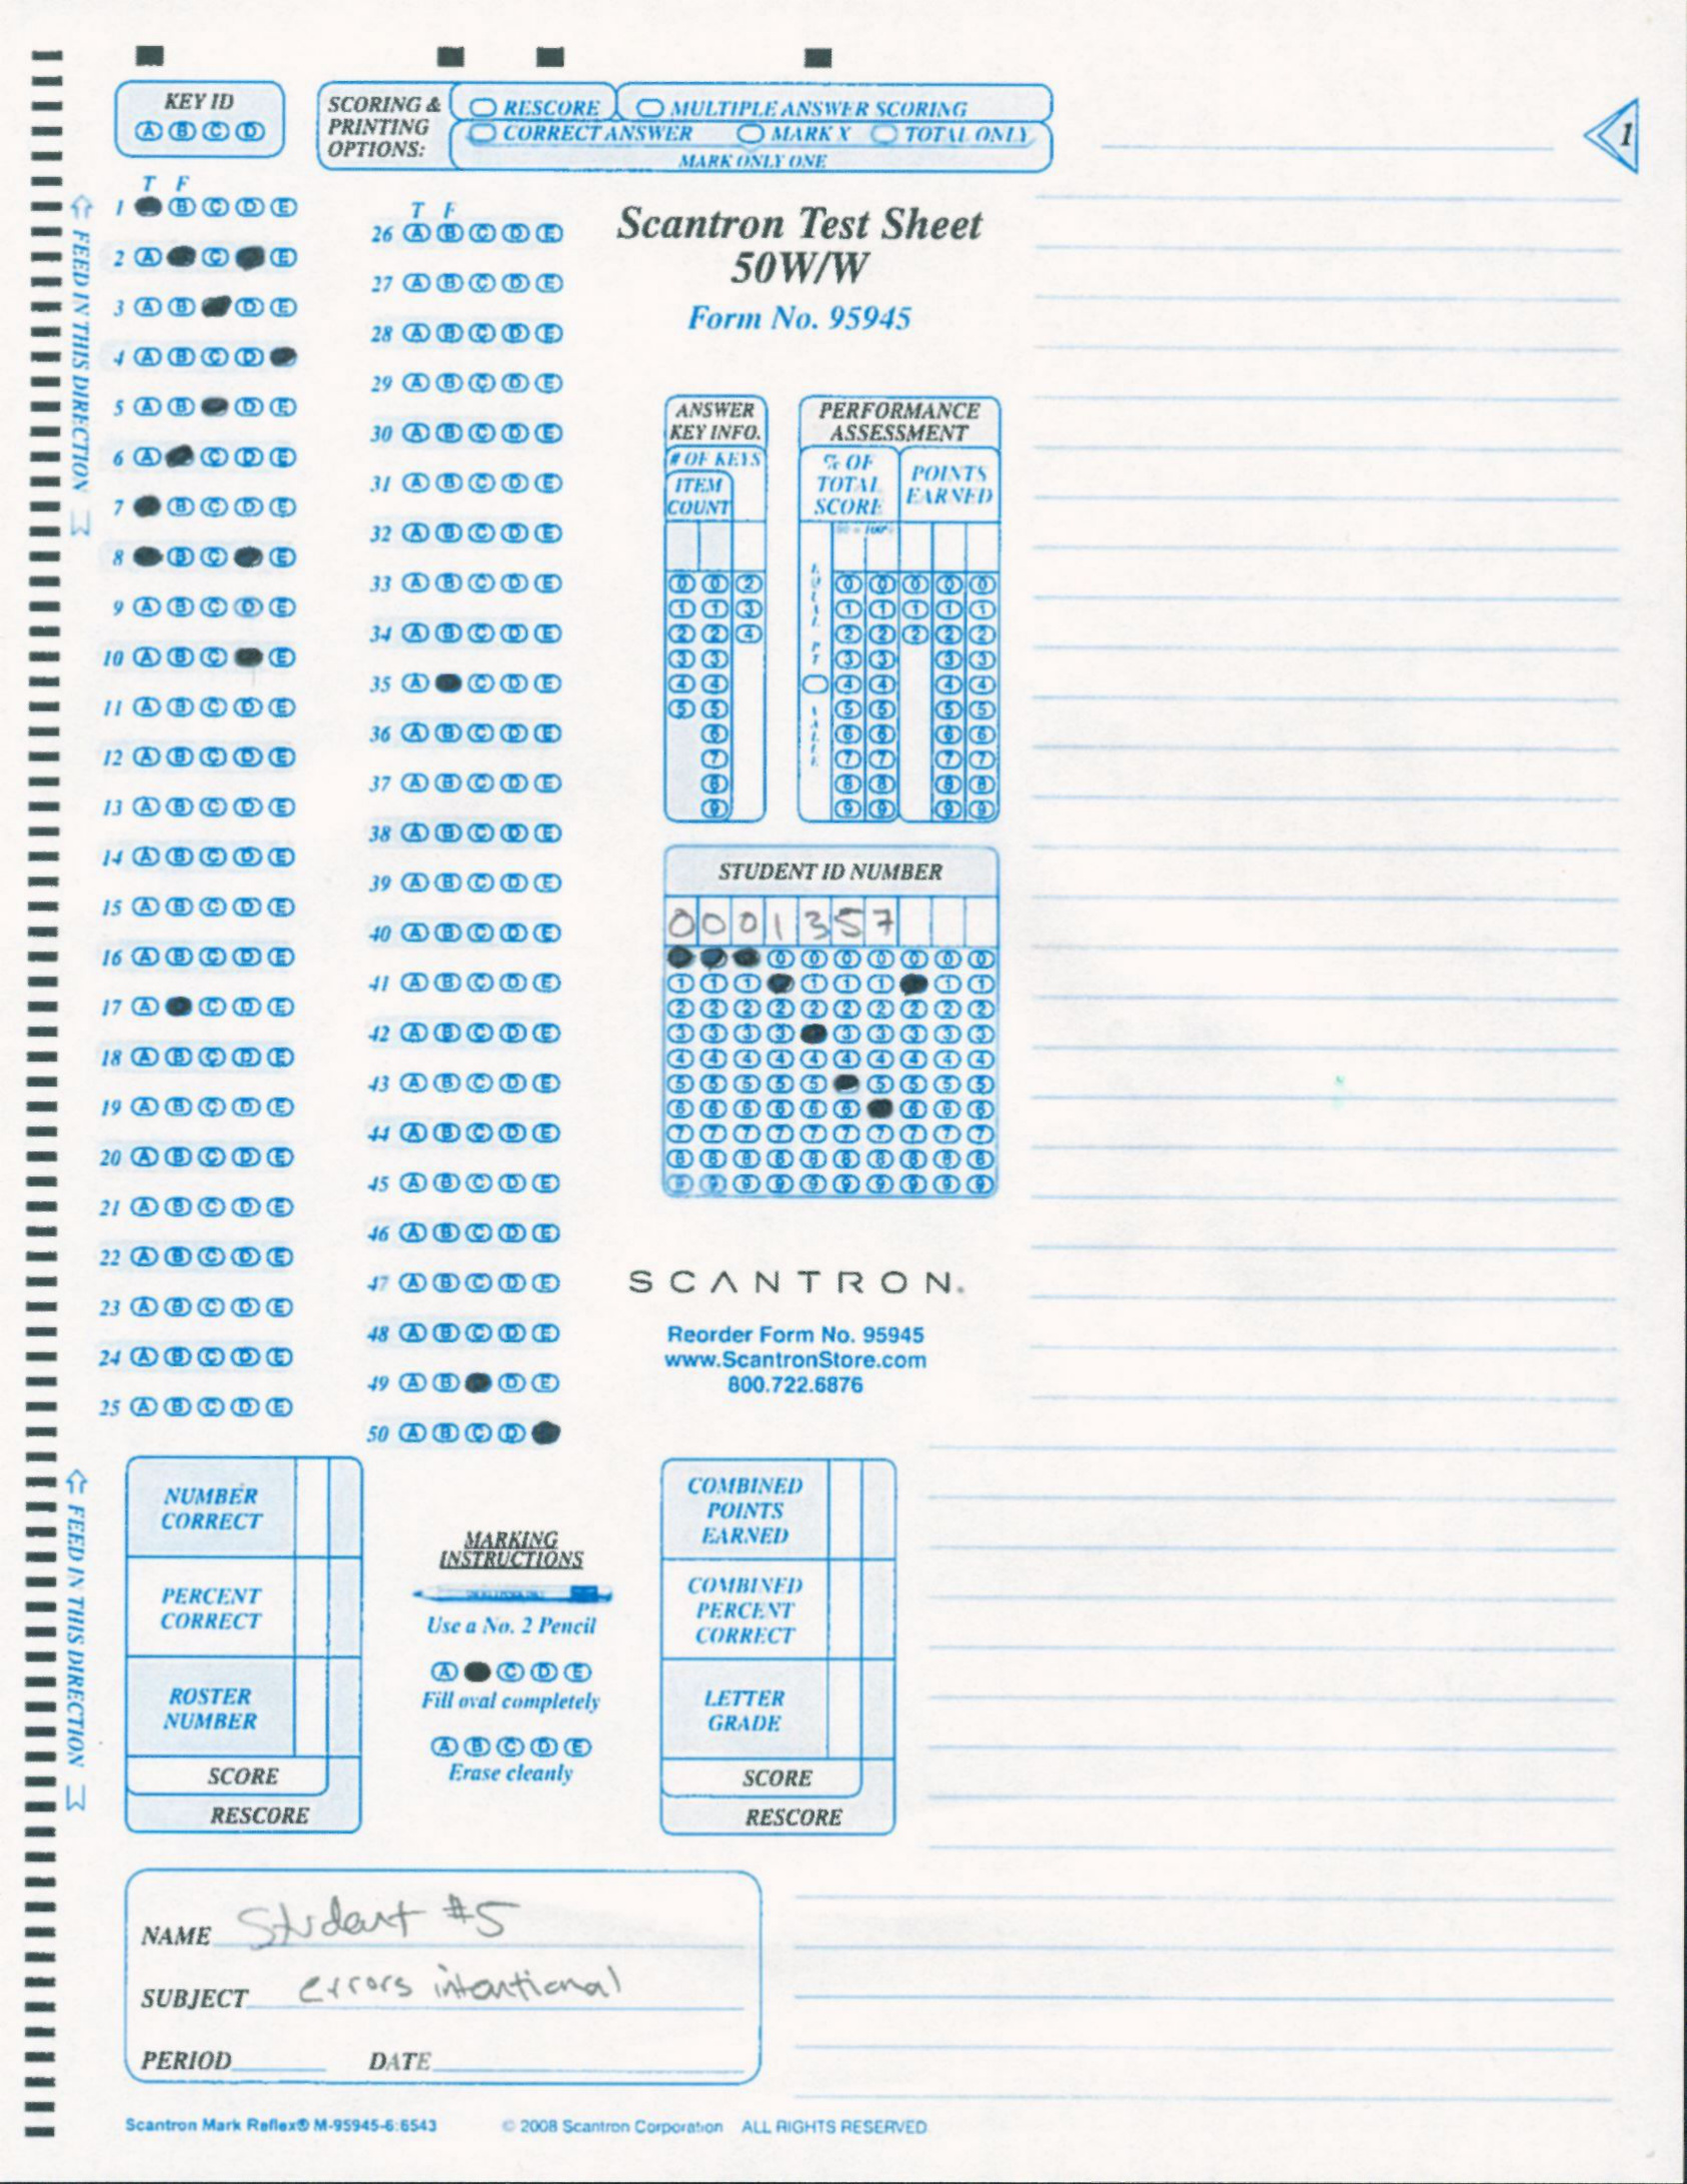 KEY ID
A B C D
SCORING & PRINTING OPTIONS:
RESCORE MULTIPLE ANSWER SCORING
CORRECT ANSWER MARK X TOTAL ONLY
MARK ONLY ONE
1
FEED IN THIS DIRECTION
T F
1 B C D E
2 A C E
3 A B D E
4 A B C D
5 A B D E
6 A C D E
7 B C D E
8 B C E
9 A B C D E
10 A B C E
11 A B C D E
12 A B C D E
13 A B C D E
14 A B C D E
15 A B C D E
16 A B C D E
17 A C D E
18 A B C D E
19 A B C D E
20 A B C D E
21 A B C D E
22 A B C D E
23 A B C D E
24 A B C D E
25 A B C D E
T F
26 A B C D E
27 A B C D E
28 A B C D E
29 A B C D E
30 A B C D E
31 A B C D E
32 A B C D E
33 A B C D E
34 A B C D E
35 A C D E
36 A B C D E
37 A B C D E
38 A B C D E
39 A B C D E
40 A B C D E
41 A B C D E
42 A B C D E
43 A B C D E
44 A B C D E
45 A B C D E
46 A B C D E
47 A B C D E
48 A B C D E
49 A B D E
50 A B C D
Scantron Test Sheet
50W/W
Form No. 95945
ANSWER
KEY INFO.
# OF KEYS
ITEM
COUNT
0 0 2
1 1 3
2 2 4
3 3
4 4
5 5
6
7
8
9
PERFORMANCE
ASSESSMENT
% OF
TOTAL
SCORE
POINTS
EARNED
00 = 100%
EQUAL PT VALUE
0 0 0 0 0
1 1 1 1 1
2 2 2 2 2
3 3 3 3
4 4 4 4
5 5 5 5
6 6 6 6
7 7 7 7
8 8 8 8
9 9 9 9
STUDENT ID NUMBER
0 0 0 1 3 5 7
0 0 0 0 0 0 0
1 1 1 1 1 1 1 1
2 2 2 2 2 2 2 2 2 2
3 3 3 3 3 3 3 3 3
4 4 4 4 4 4 4 4 4 4
5 5 5 5 5 5 5 5 5
6 6 6 6 6 6 6 6 6
7 7 7 7 7 7 7 7 7 7
8 8 8 8 8 8 8 8 8 8
9 9 9 9 9 9 9 9 9 9
SCANTRON.
Reorder Form No. 95945
www.ScantronStore.com
800.722.6876
FEED IN THIS DIRECTION
NUMBER
CORRECT
PERCENT
CORRECT
ROSTER
NUMBER
SCORE
RESCORE
MARKING
INSTRUCTIONS
Use a No. 2 Pencil
A C D E
Fill oval completely
A B C D E
Erase cleanly
COMBINED
POINTS
EARNED
COMBINED
PERCENT
CORRECT
LETTER
GRADE
SCORE
RESCORE
NAME Student #5
SUBJECT errors intentional
PERIOD DATE
Scantron Mark Reflex® M-95945-6:6543 © 2008 Scantron Corporation ALL RIGHTS RESERVED